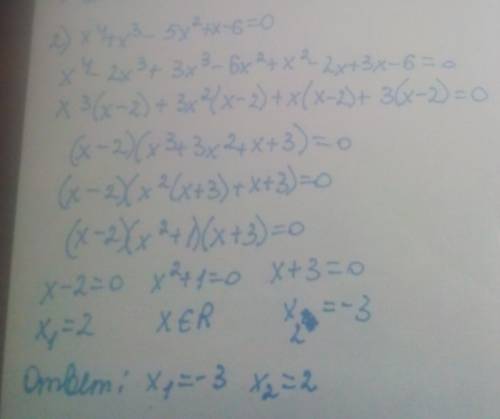 2) x⁴+x³-5x²+x-6=0
x⁴-2x³+3x³-6x²+x²-2x+3x-6=0
x³(x-2)+3x²(x-2)+x(x-2)+3(x-2)=0
(x-2)(x³+3x²+x+3)=0
(x-2)(x²(x+3)+x+3)=0
(x-2)(x²+1)(x+3)=0
x-2=0 x²+1=0 x+3=0
x₁=2 x∈R x₂=-3
Ответ: x₁=-3 x₂=2